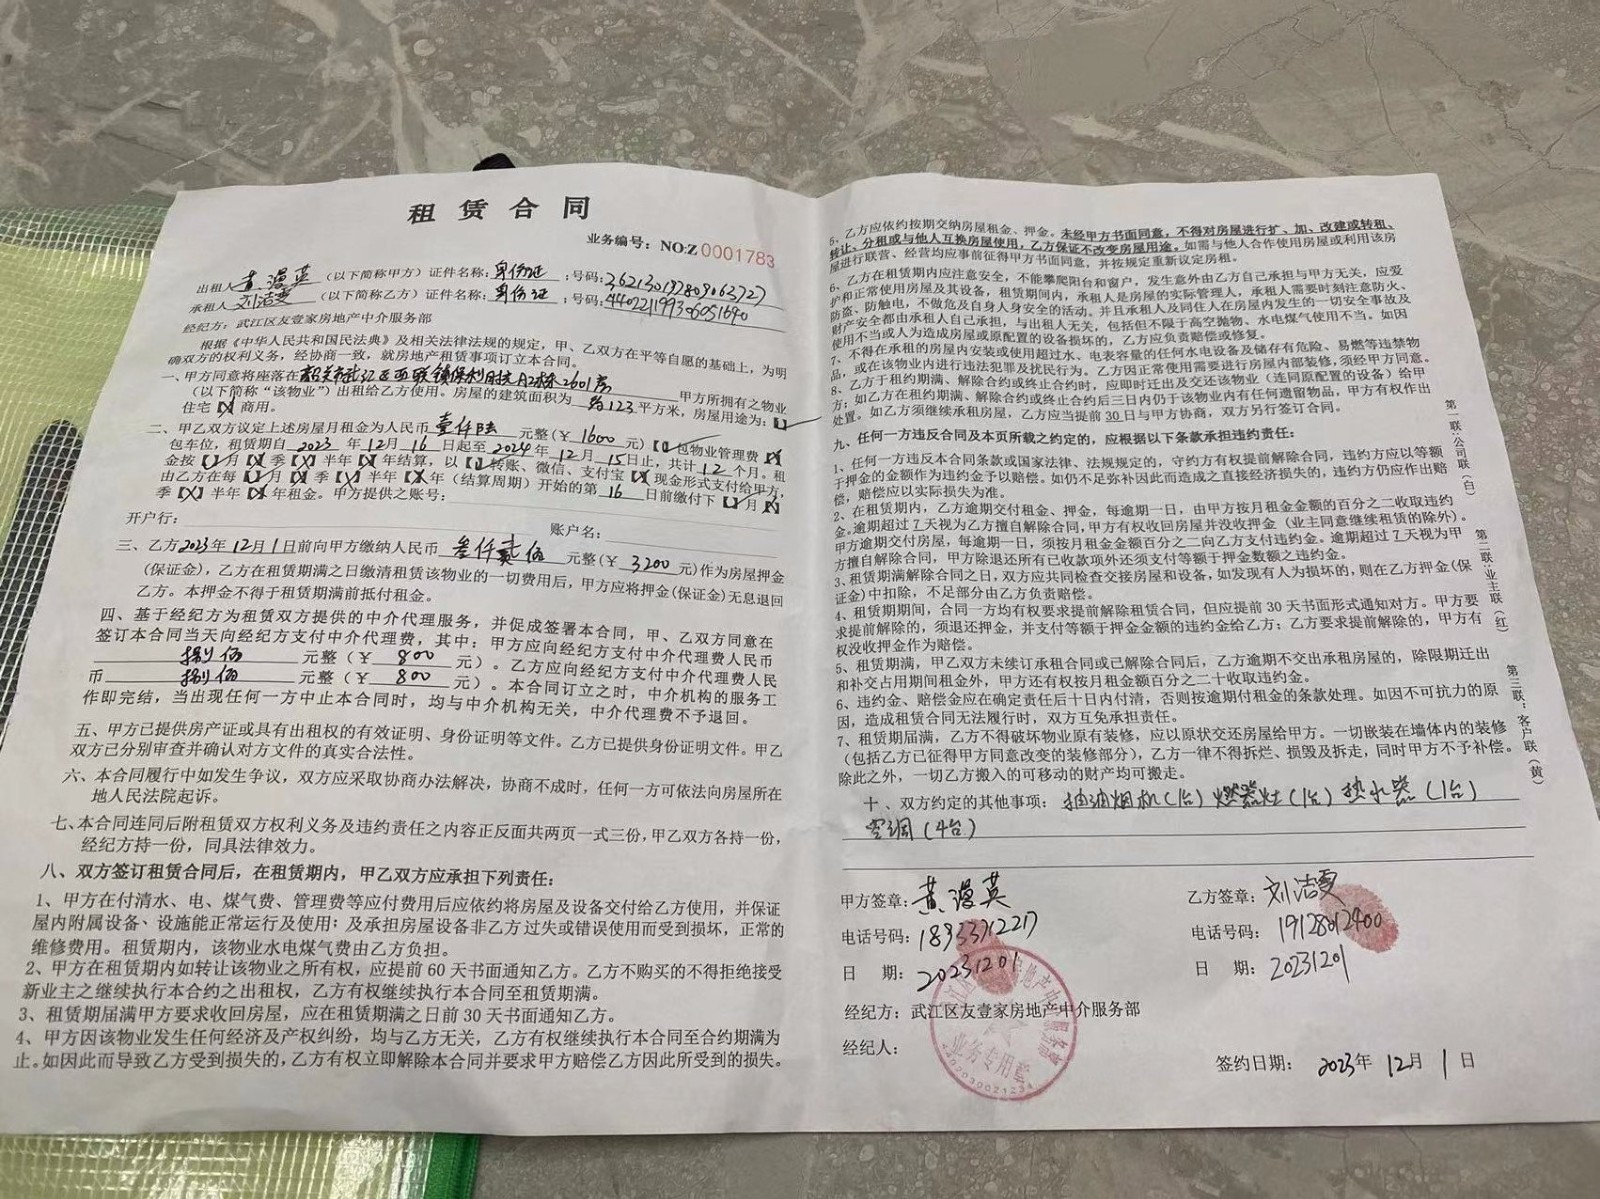 租赁合同
业务编号：NO:Z 0001783
出租人 黄漫英 （以下简称甲方）证件名称：身份证 ；号码：362130197809063727
承租人 刘洁雯 （以下简称乙方）证件名称：身份证 ；号码：
经纪方：武江区友壹家房地产中介服务部
根据《中华人民共和国民法典》及相关法律法规的规定，甲、乙双方在平等自愿的基础上，为明
确双方的权利义务，经协商一致，就房地产租赁事项订立本合同。
一、甲方同意将座落在 韶关市武江区西联镇保利 A2栋2601房 甲方所拥有之物业
（以下简称“该物业”）出租给乙方使用。房屋的建筑面积为 约123 平方米，房屋用途为：【】
住宅【X】商用。
二、甲乙双方议定上述房屋月租金为人民币 壹仟陆 元整（¥ 1600 元）【】包物业管理费【X】
包车位，租赁期自 2023 年 12 月 16 日起至 2024 年 12 月 15 日止，共计 12 个月。租
金按【】月【X】季【X】半年【X】年结算，以【】转账、微信、支付宝【X】现金形式支付给甲方，
由乙方在每【】月【X】季【X】半年【X】年（结算周期）开始的第 16 日前缴付下【】月【X】
季【X】半年【X】年租金。甲方提供之账号：
开户行： 账户名：
三、乙方 2023年12月1日前向甲方缴纳人民币 叁仟贰佰 元整（¥ 3200 元）作为房屋押金
（保证金），乙方在租赁期满之日缴清租赁该物业的一切费用后，甲方应将押金（保证金）无息退回
乙方。本押金不得于租赁期满前抵付租金。
四、基于经纪方为租赁双方提供的中介代理服务，并促成签署本合同，甲、乙双方同意在
签订本合同当天向经纪方支付中介代理费，其中：甲方应向经纪方支付中介代理费人民币
捌佰 元整（¥ 800 元）。乙方应向经纪方支付中介代理费人民
币 捌佰 元整（¥ 800 元）。本合同订立之时，中介机构的服务工
作即完结，当出现任何一方中止本合同时，均与中介机构无关，中介代理费不予退回。
五、甲方已提供房产证或具有出租权的有效证明、身份证明等文件。乙方已提供身份证明文件。甲乙
双方已分别审查并确认对方文件的真实合法性。
六、本合同履行中如发生争议，双方应采取协商办法解决，协商不成时，任何一方可依法向房屋所在
地人民法院起诉。
七、本合同连同后附租赁双方权利义务及违约责任之内容正反面共两页一式三份，甲乙双方各持一份，
经纪方持一份，同具法律效力。
八、双方签订租赁合同后，在租赁期内，甲乙双方应承担下列责任：
1、甲方在付清水、电、煤气费、管理费等应付费用后应依约将房屋及设备交付给乙方使用，并保证
屋内附属设备、设施能正常运行及使用；及承担房屋设备非乙方过失或错误使用而受到损坏，正常的
维修费用。租赁期内，该物业水电煤气费由乙方负担。
2、甲方在租赁期内如转让该物业之所有权，应提前60天书面通知乙方。乙方不购买的不得拒绝接受
新业主之继续执行本合约之出租权，乙方有权继续执行本合同至租赁期满。
3、租赁期届满甲方要求收回房屋，应在租赁期满之日前30天书面通知乙方。
4、甲方因该物业发生任何经济及产权纠纷，均与乙方无关，乙方有权继续执行本合同至合约期满为
止。如因此而导致乙方受到损失的，乙方有权立即解除本合同并要求甲方赔偿乙方因此所受到的损失。
5、乙方应依约按期交纳房屋租金、押金。未经甲方书面同意，不得对房屋进行扩、加、改建或转租、
转让、分租或与他人互换房屋使用，乙方保证不改变房屋用途。如需与他人合作使用房屋或利用该房
屋进行联营、经营均应事前征得甲方书面同意，并按规定重新议定房租。
6、乙方在租赁期内应注意安全，不能攀爬阳台和窗户，发生意外由乙方自己承担与甲方无关，应爱
护和正常使用房屋及其设备，租赁期间内，承租人是房屋的实际管理人，承租人需要时刻注意防火、
防盗、防触电，不做危及自身人身安全的活动。并且承租人及同住人在房屋内发生的一切安全事故及
财产安全都由承租人自己承担，与出租人无关，包括但不限于高空抛物、水电煤气使用不当。如因
使用不当或人为造成房屋或原配置的设备损坏的，乙方应负责赔偿或修复。
7、不得在承租的房屋内安装或使用超过水、电表容量的任何水电设备及储存有危险、易燃等违禁物
品，或在该物业内进行违法犯罪及扰民行为。乙方因正常使用需要进行房屋内部装修，须经甲方同意。
8、乙方于租约期满、解除合约或终止合约时，应即时迁出及交还该物业（连同原配置的设备）给甲
方；如乙方在租约期满、解除合约或终止合约后三日内仍于该物业内有任何遗留物品，甲方有权作出
处置。如乙方须继续承租房屋，乙方应当提前30日与甲方协商，双方另行签订合同。
九、任何一方违反合同及本页所载之约定的，应根据以下条款承担违约责任：
1、任何一方违反本合同条款或国家法律、法规规定的，守约方有权提前解除合同，违约方应以等额
于押金的金额作为违约金予以赔偿。如仍不足弥补因此而造成之直接经济损失的，违约方仍应作出赔
偿，赔偿应以实际损失为准。
2、在租赁期内，乙方逾期交付租金、押金，每逾期一日，由甲方按月租金金额的百分之二收取违约
金。逾期超过7天视为乙方擅自解除合同，甲方有权收回房屋并没收押金（业主同意继续租赁的除外）。
甲方逾期交付房屋，每逾期一日，须按月租金金额百分之二向乙方支付违约金。逾期超过7天视为甲
方擅自解除合同，甲方除退还所有已收款项外还须支付等额于押金数额之违约金。
3、租赁期满解除合同之日，双方应共同检查交接房屋和设备，如发现有人为损坏的，则在乙方押金（保
证金）中扣除，不足部分由乙方负责赔偿。
4、租赁期期间，合同一方均有权要求提前解除租赁合同，但应提前30天书面形式通知对方。甲方要
求提前解除的，须退还押金，并支付等额于押金金额的违约金给乙方；乙方要求提前解除的，甲方有
权没收押金作为赔偿。
5、租赁期满，甲乙双方未续订承租合同或已解除合同后，乙方逾期不交出承租房屋的，除限期迁出
和补交占用期间租金外，甲方还有权按月租金额百分之二十收取违约金。
6、违约金、赔偿金应在确定责任后十日内付清，否则按逾期付租金的条款处理。如因不可抗力的原
因，造成租赁合同无法履行时，双方互免承担责任。
7、租赁期届满，乙方不得破坏物业原有装修，应以原状交还房屋给甲方。一切嵌装在墙体内的装修
（包括乙方已征得甲方同意改变的装修部分），乙方一律不得拆烂、损毁及拆走，同时甲方不予补偿。
除此之外，一切乙方搬入的可移动的财产均可搬走。
十、双方约定的其他事项：抽油烟机（1台）燃器灶（1台）热水器（1台）
空调（4台）
甲方签章：黄漫英
电话号码：18933712217
日 期：20231201
经纪方：武江区友壹家房地产中介服务部
经纪人：
乙方签章：刘洁雯
电话号码：19128012400
日 期：20231201
签约日期：2023年 12月 1日
业务专用章
第一联：公司联（白）
第二联：业主联（红）
第三联：客户联（黄）